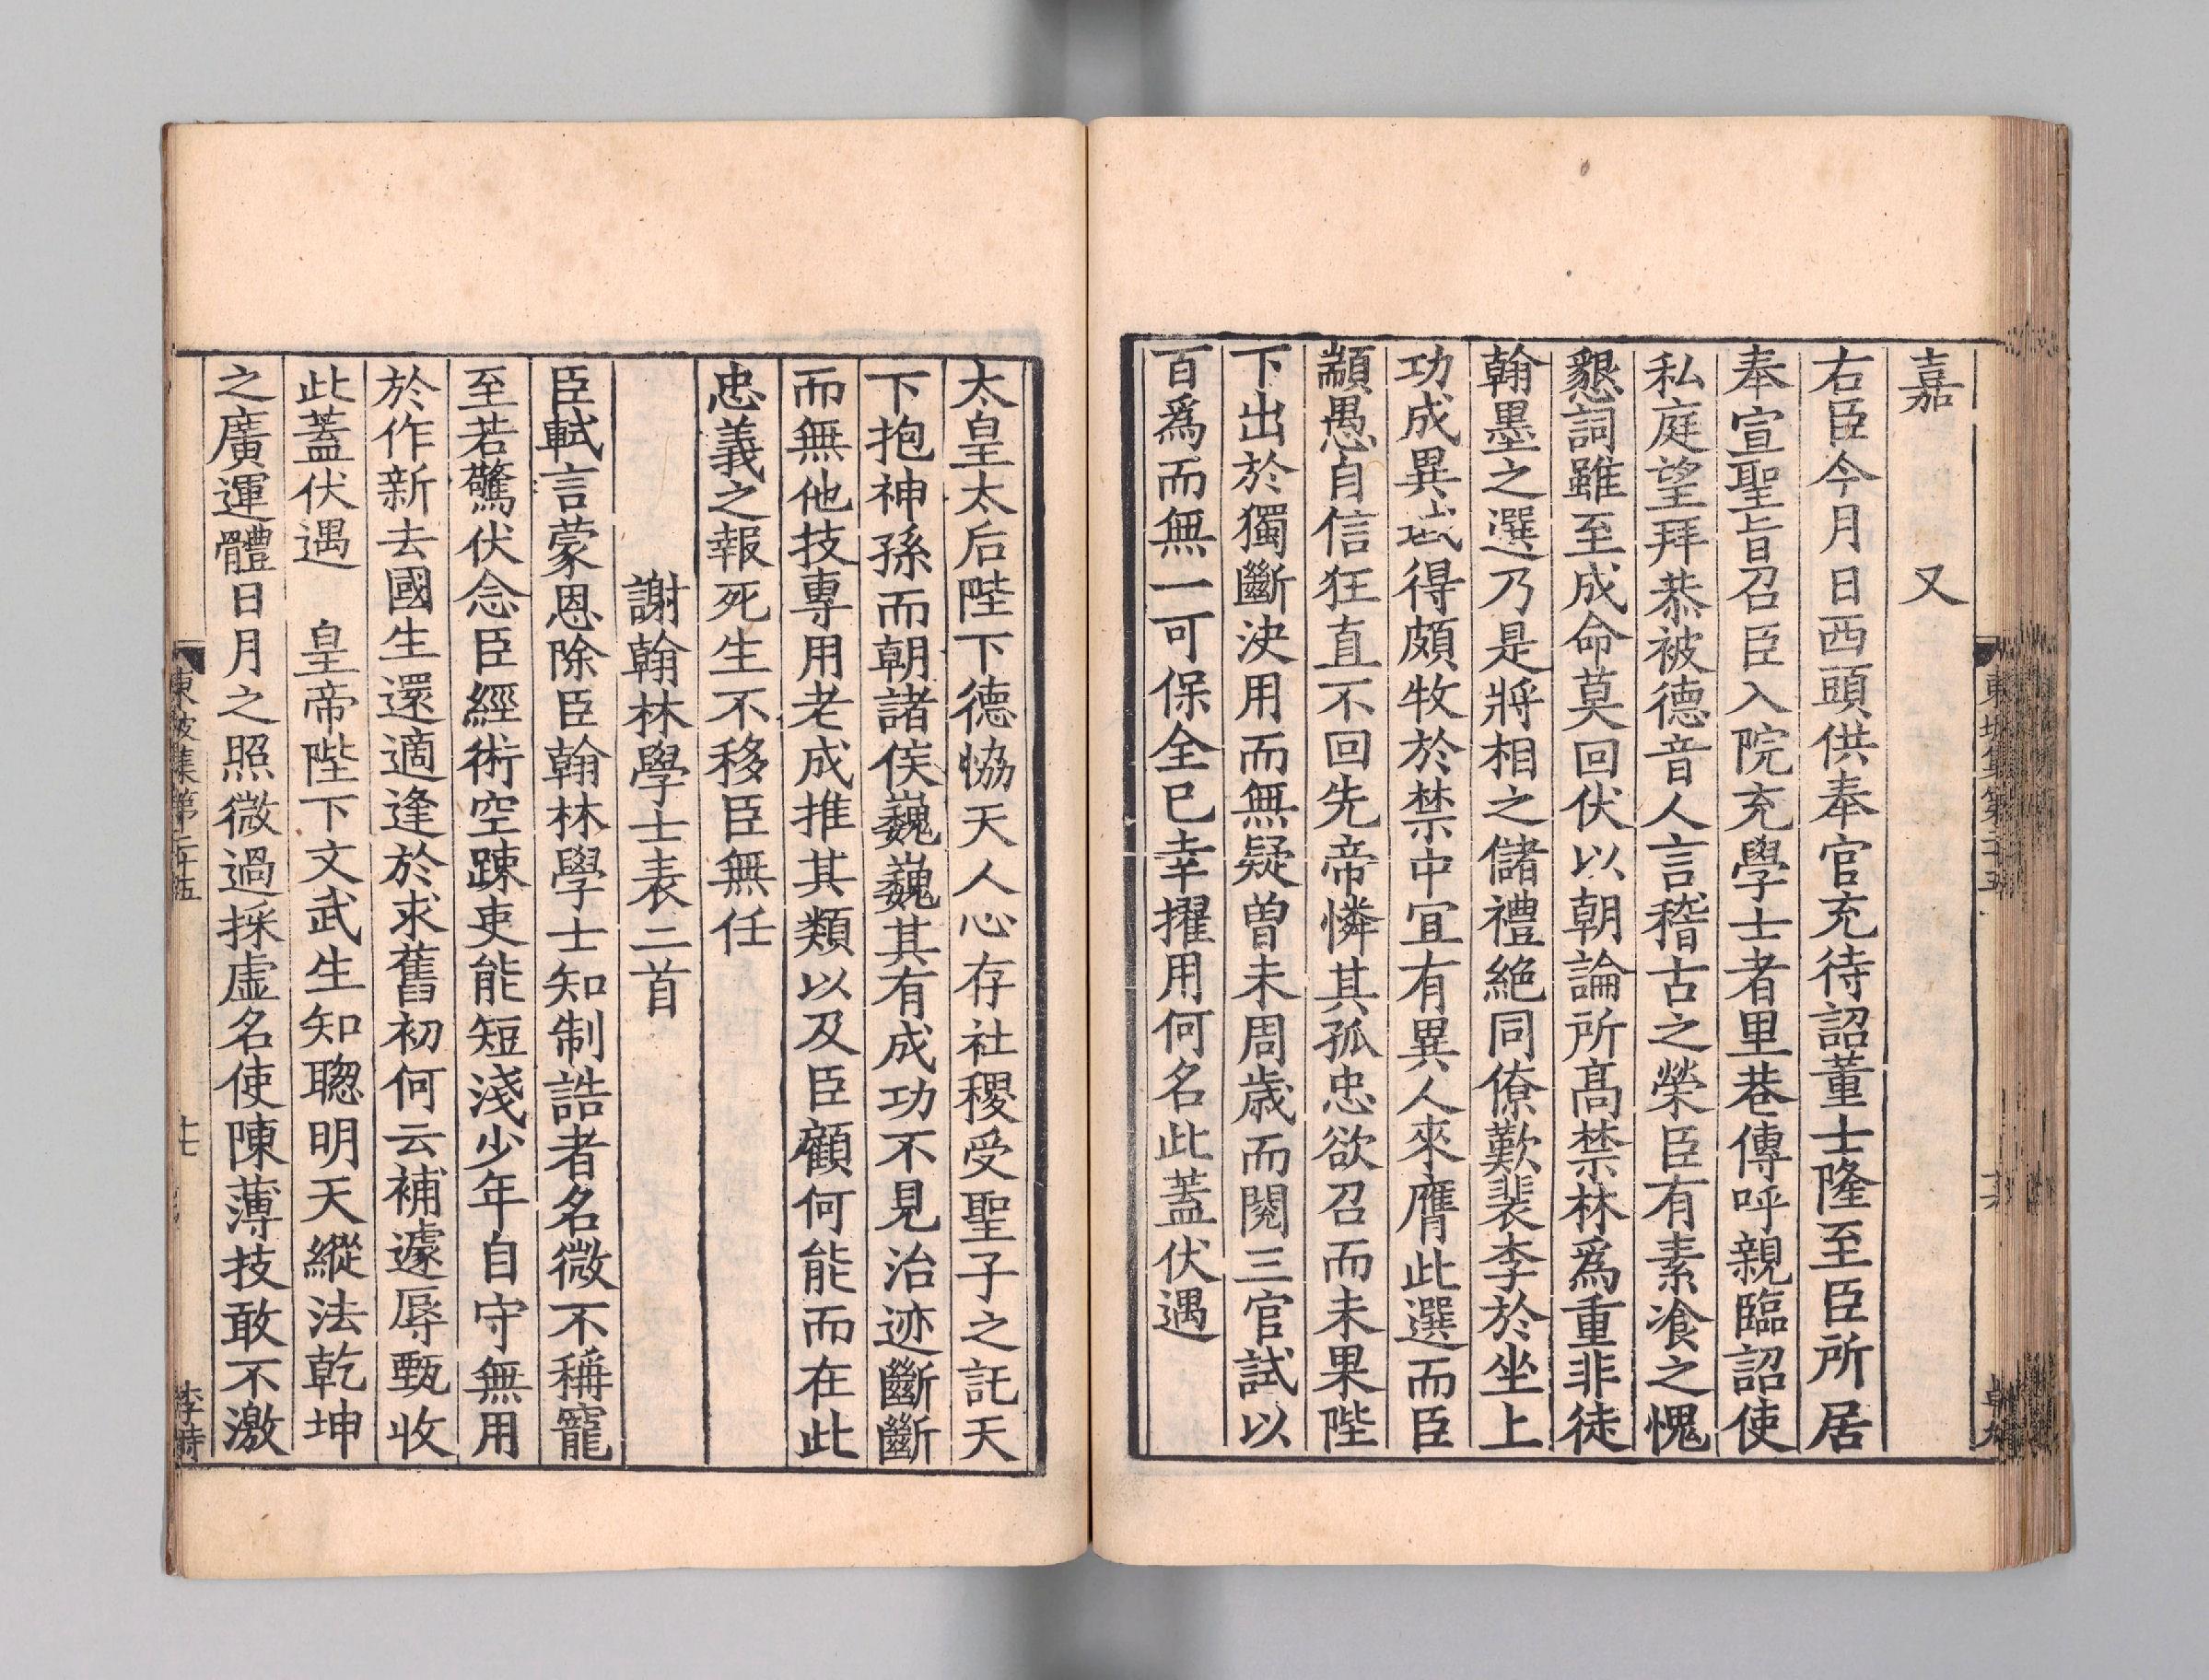 嘉　又
右臣今月日西頭供奉官充待詔董士隆至臣所居
奉宣聖旨召臣入院充學士者里巷傳呼親臨詔使
私庭望拜恭被德音人言稽古之榮臣有素飡之愧
懇詞雖至成命莫回伏以朝論所髙禁林爲重非徒
翰墨之選乃是將相之儲禮絕同僚歎裴李於坐上
功成異域得頗牧於禁中宜有異人來膺此選而臣
顓愚自信狂直不回先帝憐其孤忠欲召而未果陛
下出於獨斷決用而無疑曾未周歲而閱三官試以
百爲而無一可保全已幸擢用何名此蓋伏遇
東坡集第二十五
太皇太后陛下德恊天人心存社稷受聖子之託天
下抱神孫而朝諸侯巍巍其有成功不見治迹斷斷
而無他技專用老成推其類以及臣顧何能而在此
忠義之報死生不移臣無任
謝翰林學士表二首
臣軾言蒙恩除臣翰林學士知制誥者名微不稱寵
至若驚伏念臣經術空踈吏能短淺少年自守無用
於作新去國生還適逢於求舊初何云補遽辱甄收
此蓋伏遇　皇帝陛下文武生知聦明天縱法乾坤
之廣運體日月之照微過採虛名使陳薄技敢不激
東坡集第二十五
十七
李時